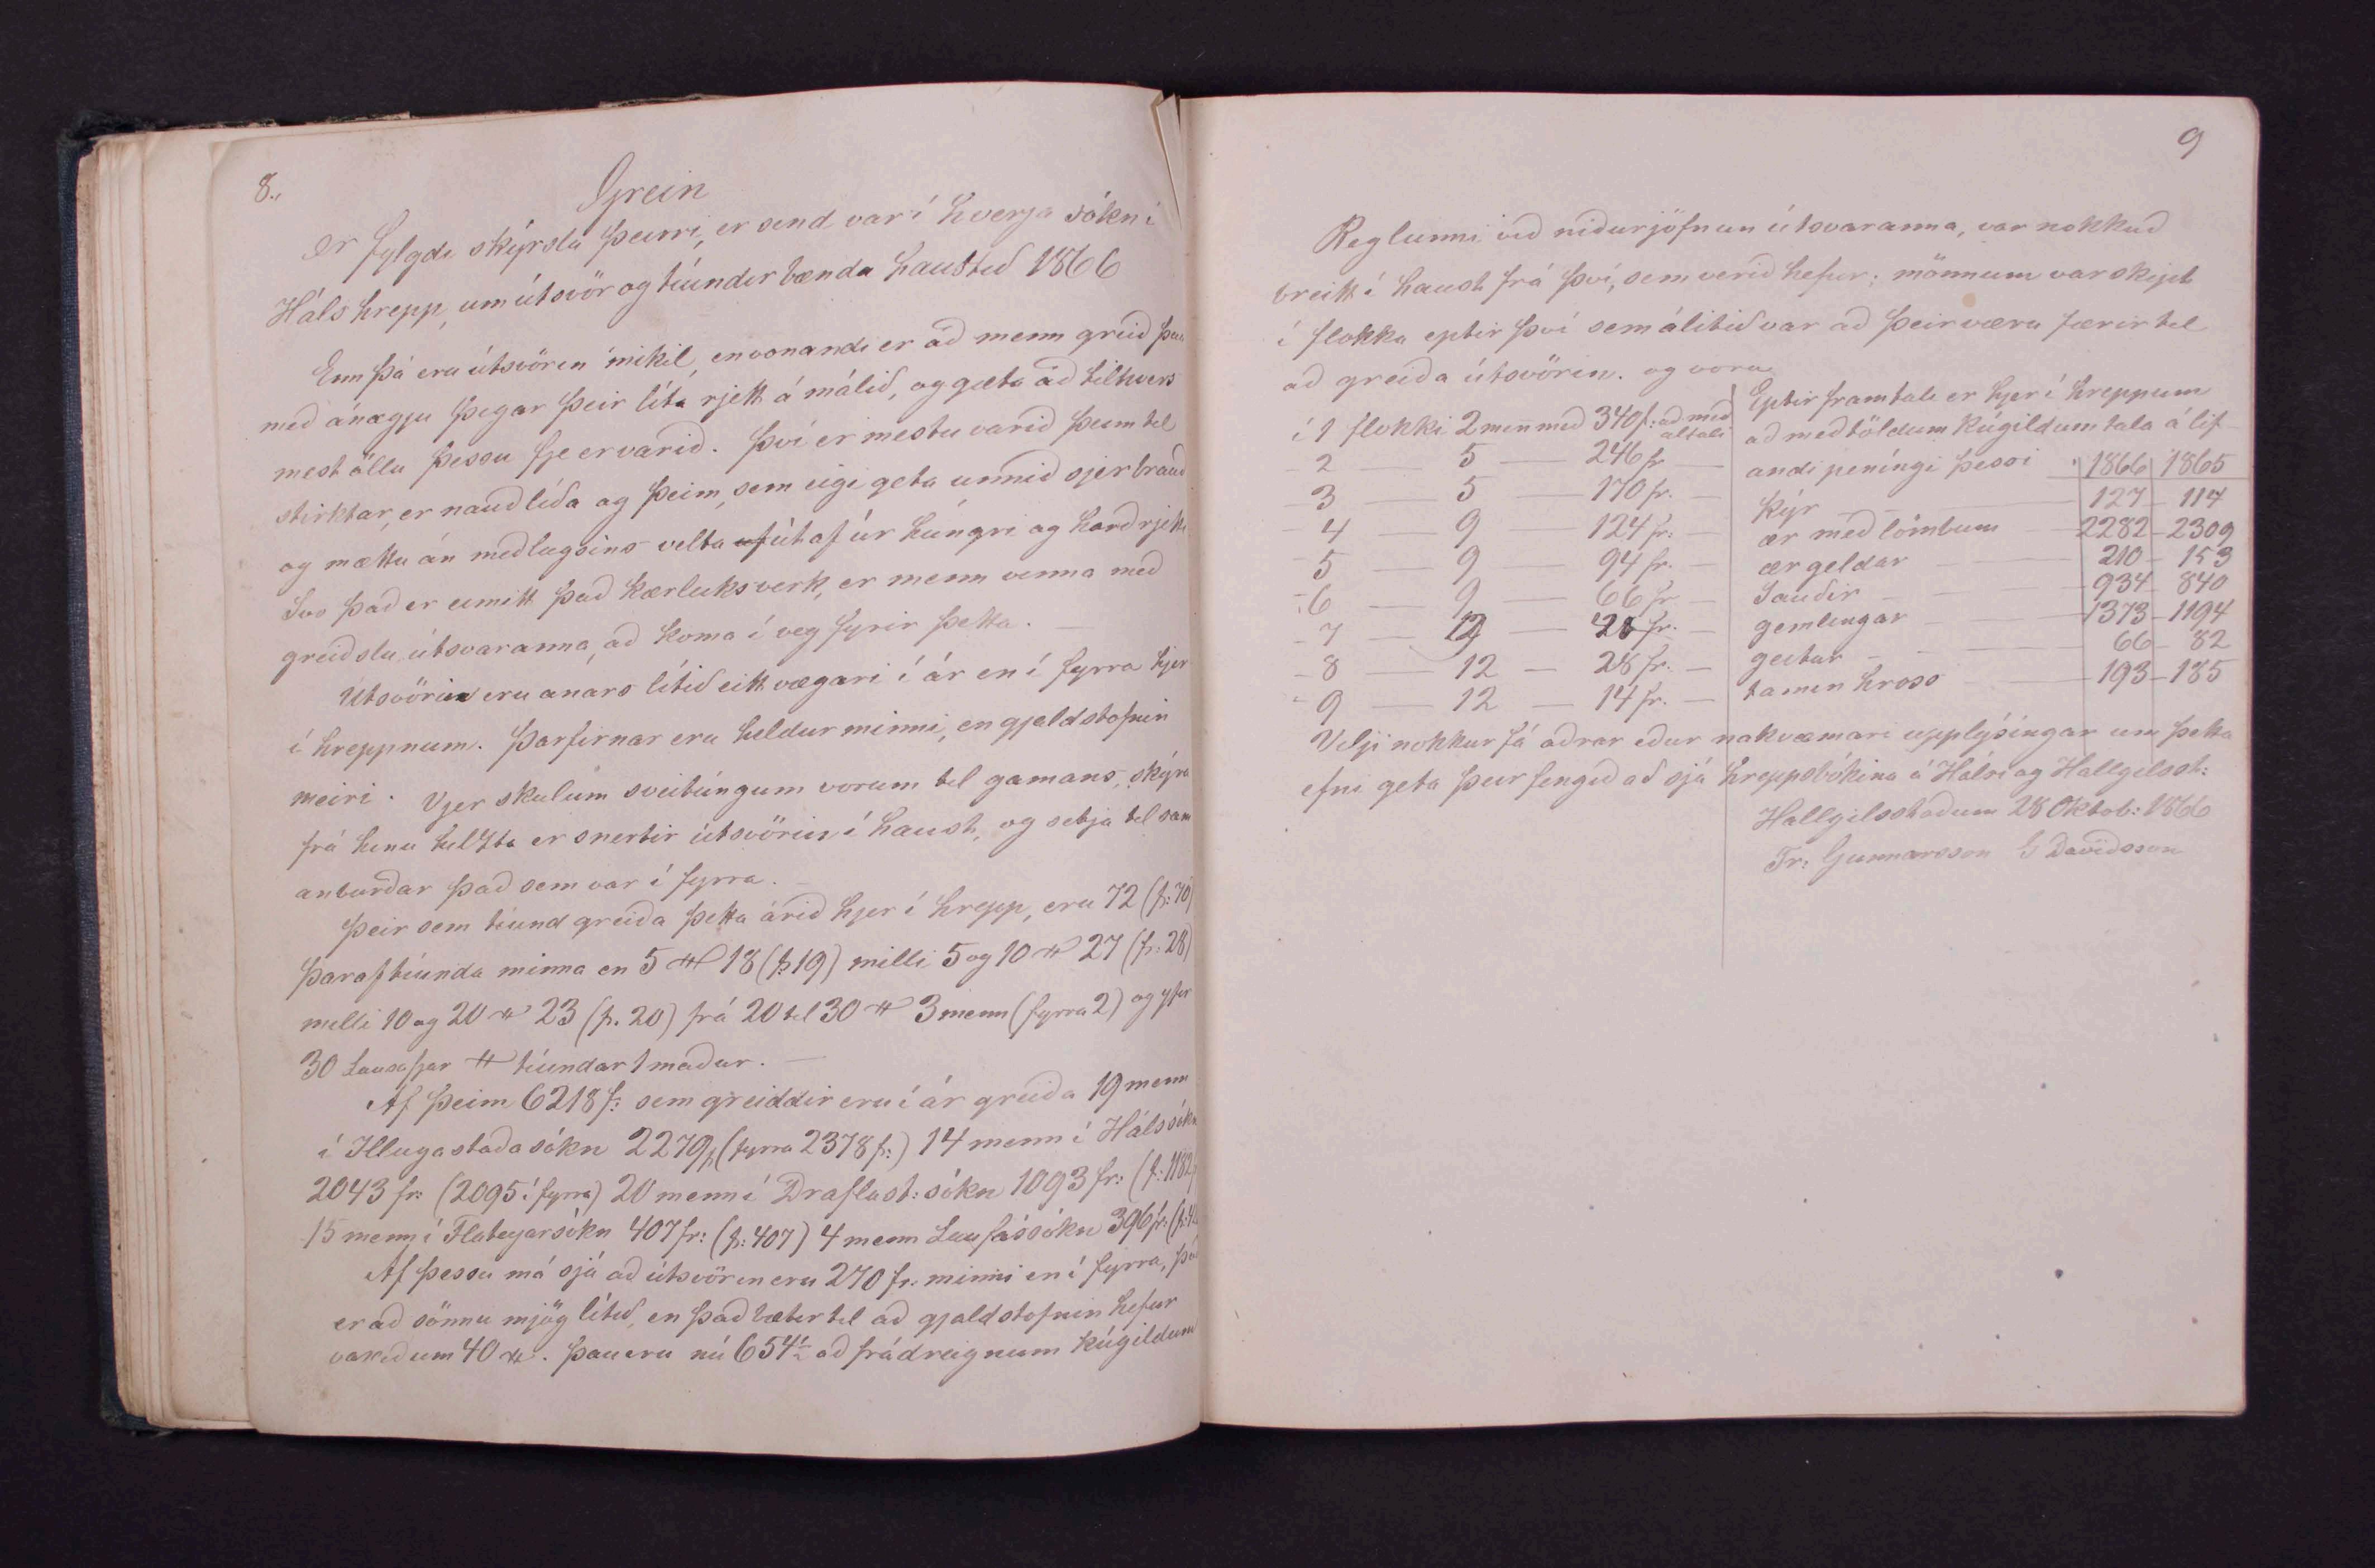 8.,
Grein
er fylgdi skýrslu þeirri, er send var í hverja sókn í
Háls hrepp, um útsvör og tíundir bænda haustið 1866
Enn þá eru útsvörin mikil, en vonandi er að menn greið þau
með ánægju þegar þeir líta rjett á málið, og gæta að til hvers
mest öllu þessu fje er varið. Því er mestu varið þeim til
stirktar, er nauðlíða og þeim, sem eigi geta unnið sjer brauð
og mættu án meðlagsins velta af út af úr húngri og harðrjetti
Svo það er eimitt það kærleiksverk, er menn vinna með
greiðslu útsvaranna, að koma í veg fyrir þetta. —
Útsvörin eru anars lítið eitt vægari í ár en í fyrra hjer
í hreppnum. Þarfirnar eru heldur minni, en gjaldstofnin
meiri. Vjer skulum sveitúngum vorum til gamans, skýra
frá hinu helzta er snertir útsvörin í haust, og setja til sam
anburðar það sem var í fyrra. —
Þeir sem tíund greiða þetta árið hjer í hrepp, eru 72 (f: 70)
þaraf tíunda minna en 5 # 18 (f: 19) milli 5 og 10 # 27 (f: 28)
milli 10 og 20 # 23 (f. 20) frá 20 til 30 # 3 menn (fyrra 2) og yfir
30 Lausafjár # tíundar 1 maður. —
Af þeim 6218 f: sem greiddir eru í ár greiða 19 menn
í Illugastaðasókn 2279 f (fyrra 2378 f:) 14 menn í Hálssókn
2043 fr: (2095 í fyrra) 20 menn í Draflast: sókn 1093 fr: (f: 1182)
15 menn í Flateyarsókn 407 fr: (f: 407) 4 menn Laufássókn 396 fr: (f:
Af þessu má sjá að útsvörin eru 270 fr: minni en í fyrra, það
er að sönnu mjög lítið, en það bætir til að gjaldstofnin hefur
vaxið um 40 #. Þau eru nú 654½ að frádreignum kúgildum
9
Reglunni við niðurjöfnun útsvaranna, var nokkuð
breitt í haust frá því, sem verið hefur; mönnum var skipt
í flokka eptir því sem álitið var að þeir væru færir til
að greiða útsvörin. og voru
í 1 flokki 2 men með 340 f: að með altali
- 2 — 5 — 246 fr —
- 3 — 5 — 170 fr. —
- 4 — 9 — 124 fr: —
- 5 — 9 — 94 fr. —
- 6 — 9 — 66 fr —
- 7 — 12 — fr. —
- 8 — 12 — 28 fr. —
- 9 — 12 — 14 fr. —
Eptir framtali er hjer í hreppnum
að meðtöldum kúgildum tala á lif-
andi peníngi þessi 1866 1865
kýr — 127 - 114
ær með lömbum 2282 - 2309
ær geldar — 210 - 153
Sauðir — 934 - 840
gemlingar — 1373 - 1194
geitur — 66 - 82
tamin hross — 193 - 185
Vilji nokkur fá aðrar eður nakvæmari upplýsíngar um þetta
efni geta þeir fengið að sjá hreppsbókina á Hálsi og Hallgilsst:
Hallgilsstöðum 28 Oktob: 1866
Tr: Gunnarsson G Davíðsson